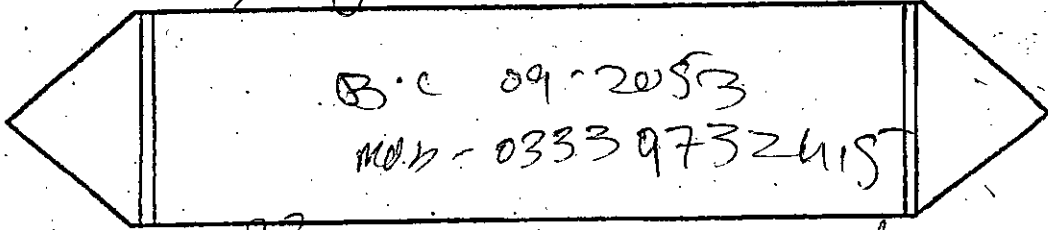 B.C 09-2053
mob - 03339732415